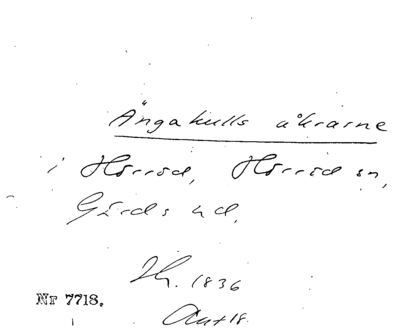 Ängakulls åkrarne
i Hörröd, Hörröd sn,
Gärds hd.
Sk. 1836
Nr 7718.